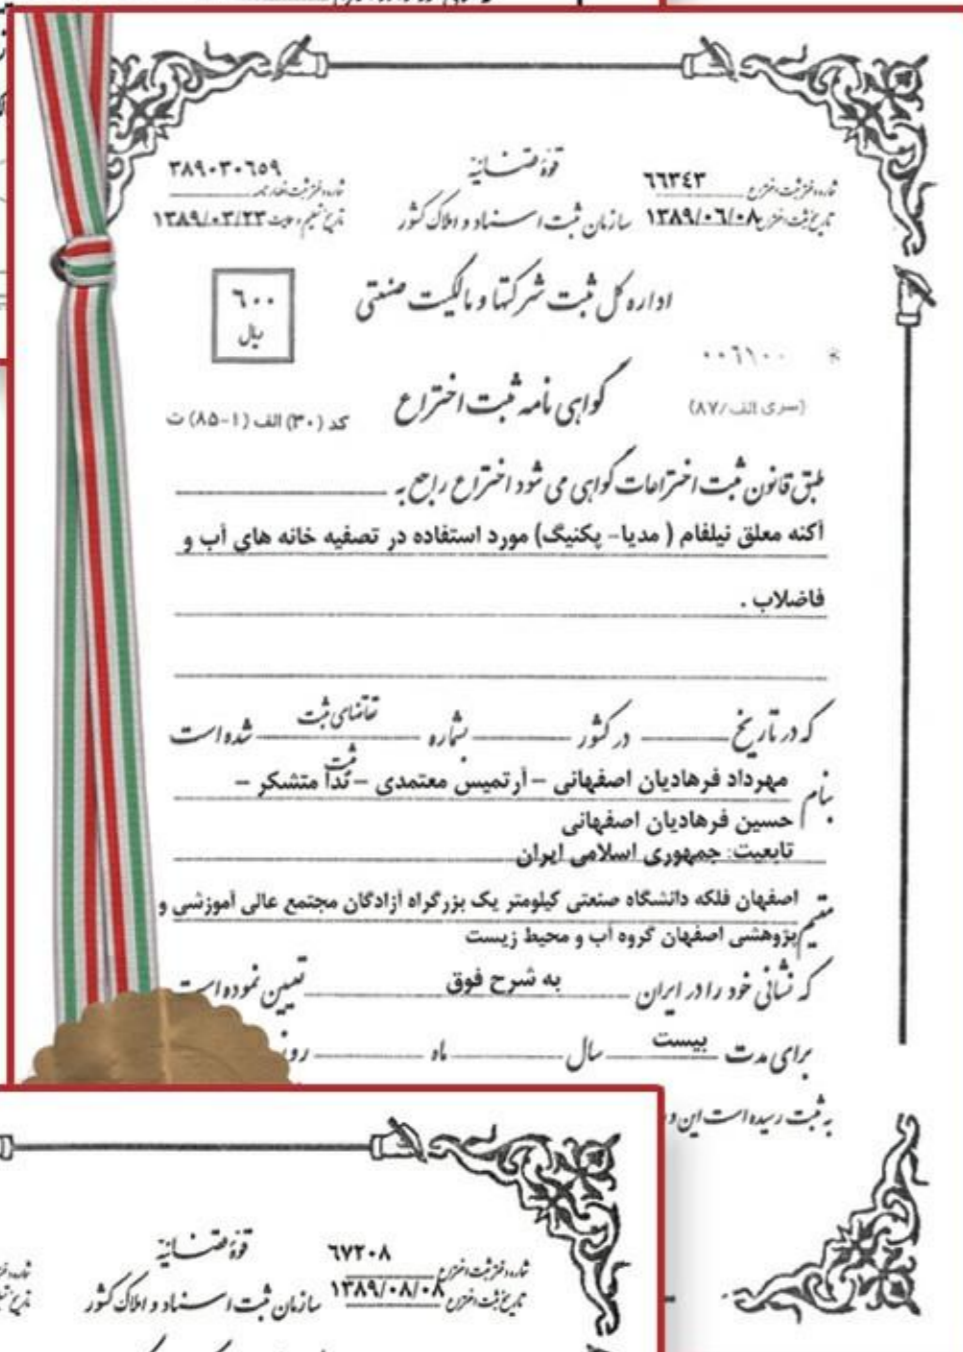 قوهٔ قضائیه
۶۶۳۴۳
شماره دفتر ثبت اختراع
۳۸۹۰۳۰۶۵۹
شماره دفتر ثبت اظهارنامه
سازمان ثبت اسناد و املاک کشور
تاریخ ثبت اختراع ۱۳۸۹/۰۶/۰۸
تاریخ تسلیم و ساعت ۱۳۸۹/۰۳/۲۳
اداره کل ثبت شرکتها و مالکیت صنعتی
۶۰۰
ریال
۰۰۶۱۰۰
گواهی نامه ثبت اختراع
(سری الف/۸۷)
کد (۳۰) الف (۱-۸۵) ت
طبق قانون ثبت اختراعات گواهی می شود اختراع راجع به
آکنه معلق نیلفام ( مدیا- پکنیگ) مورد استفاده در تصفیه خانه های آب و
فاضلاب .
که در تاریخ در کشور بشماره تقاضای ثبت شده است
ثبت
بنام مهرداد فرهادیان اصفهانی – آرتمیس معتمدی – ندا متشکر –
حسین فرهادیان اصفهانی
تابعیت: جمهوری اسلامی ایران
مقیم اصفهان فلکه دانشگاه صنعتی کیلومتر یک بزرگراه آزادگان مجتمع عالی آموزشی و
پژوهشی اصفهان گروه آب و محیط زیست
که نشانی خود را در ایران به شرح فوق تعیین نموده است
برای مدت بیست سال ماه روز
به ثبت رسیده است این و
قوهٔ قضائیه
۶۷۲۰۸
شماره دفتر ثبت اختراع
سازمان ثبت اسناد و املاک کشور
تاریخ ثبت اختراع ۱۳۸۹/۰۸/۰۸